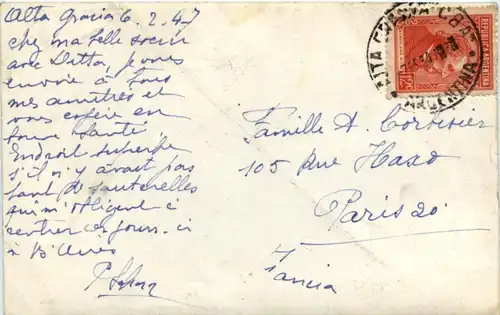 Alta Gracia 6.2.47
chez ma belle soeur
avec Ditta, je vous
envoie à tous
mes amitiés et
vous espère en
bonne santé.
Endroit superbe
s'il n'y avait pas
tant de sauterelles
qui m'obligent à
rentrer ces jours-ci
à Bs Aires
Famille A. Corbisier
105 Rue Haxo
Paris 20
Francia
REPUBLICA ARGENTINA
ALTA GRACIA
ARGENTINA